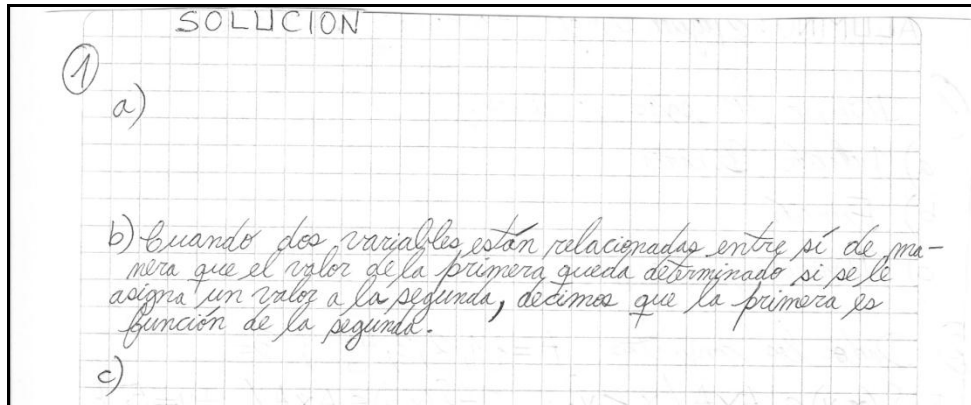 SOLUCION
1
a)
b) Cuando dos variables están relacionadas entre sí de ma-
nera que el valor de la primera queda determinado si se le
asigna un valor a la segunda, decimos que la primera es
función de la segunda.
c)